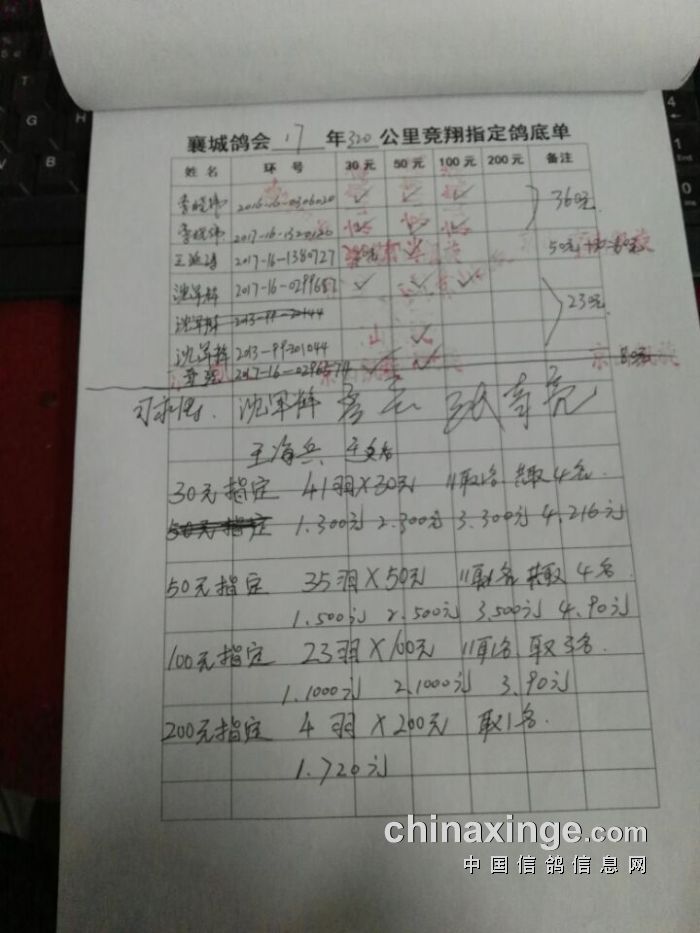 襄城鸽会 17 年 320 公里竞翔指定鸽底单
姓名 环号 30元 50元 100元 200元 备注
李晓伟 2016-16-0306020 ✓ ✓ ✓ 360元
李晓伟 2017-16-1320120
2017-16-1380727 ✓ 50元
沈军辉 2017-16-029965 ✓ ✓ ✓ 230元
沈军辉 2013-99-20144
沈军辉 2013-99-201044 ✓
2017-16-0296574 ✓ ✓ 80元
沈军辉
王海兵
30元指定 41羽X30元 11取1名 共取4名.
50元指定 1.300元 2.300元 3.300元 4.216元
50元指定 35羽X50元 11取1名 共取4名.
1.500元 2.500元 3.500元 4.90元
100元指定 23羽X100元 11取1名 取3名.
1.1000元 2.1000元 3.90元
200元指定 4羽X200元 取1名.
1.720元
chinaxinge.com
中国信鸽信息网